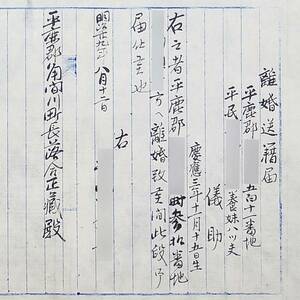 離婚送籍届
平鹿郡
五百十一番地
平民
養妹ハツ夫
儀助
慶應三年十一月十五日生
右之者平鹿郡
四番地
方ヘ離婚致候間此段
届仕候也
明治廿九年八月十二日
右
平鹿郡角間川町長落合正藏殿